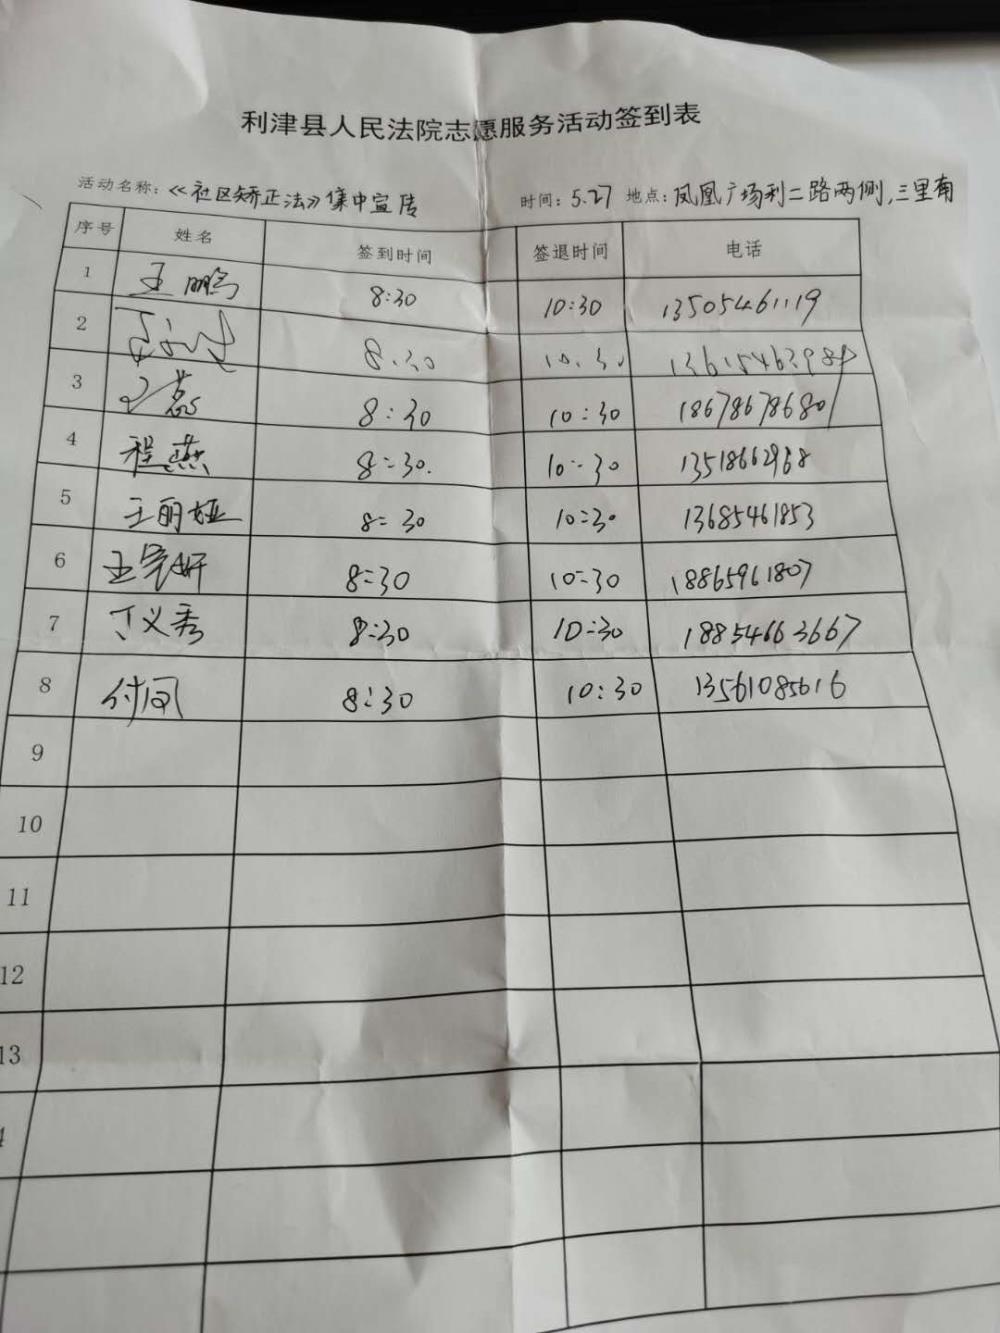 利津县人民法院志愿服务活动签到表
活动名称：《社区矫正法》集中宣传 时间：5.27 地点：凤凰广场利二路两侧,三里甫
序号 姓名 签到时间 签退时间 电话
1 王鹏 8:30 10:30 13505461119
2 8:30 10:30
3 王慧 8:30 10:30 18678678680
4 程燕 8:30. 10:30 13518662968
5 王丽娅 8:30 10:30 13685461853
6 王妍 8:30 10:30 18865961807
7 丁义秀 8:30 10:30 18854663667
8 付凤 8:30 10:30 13561085616
9
10
11
12
13
4